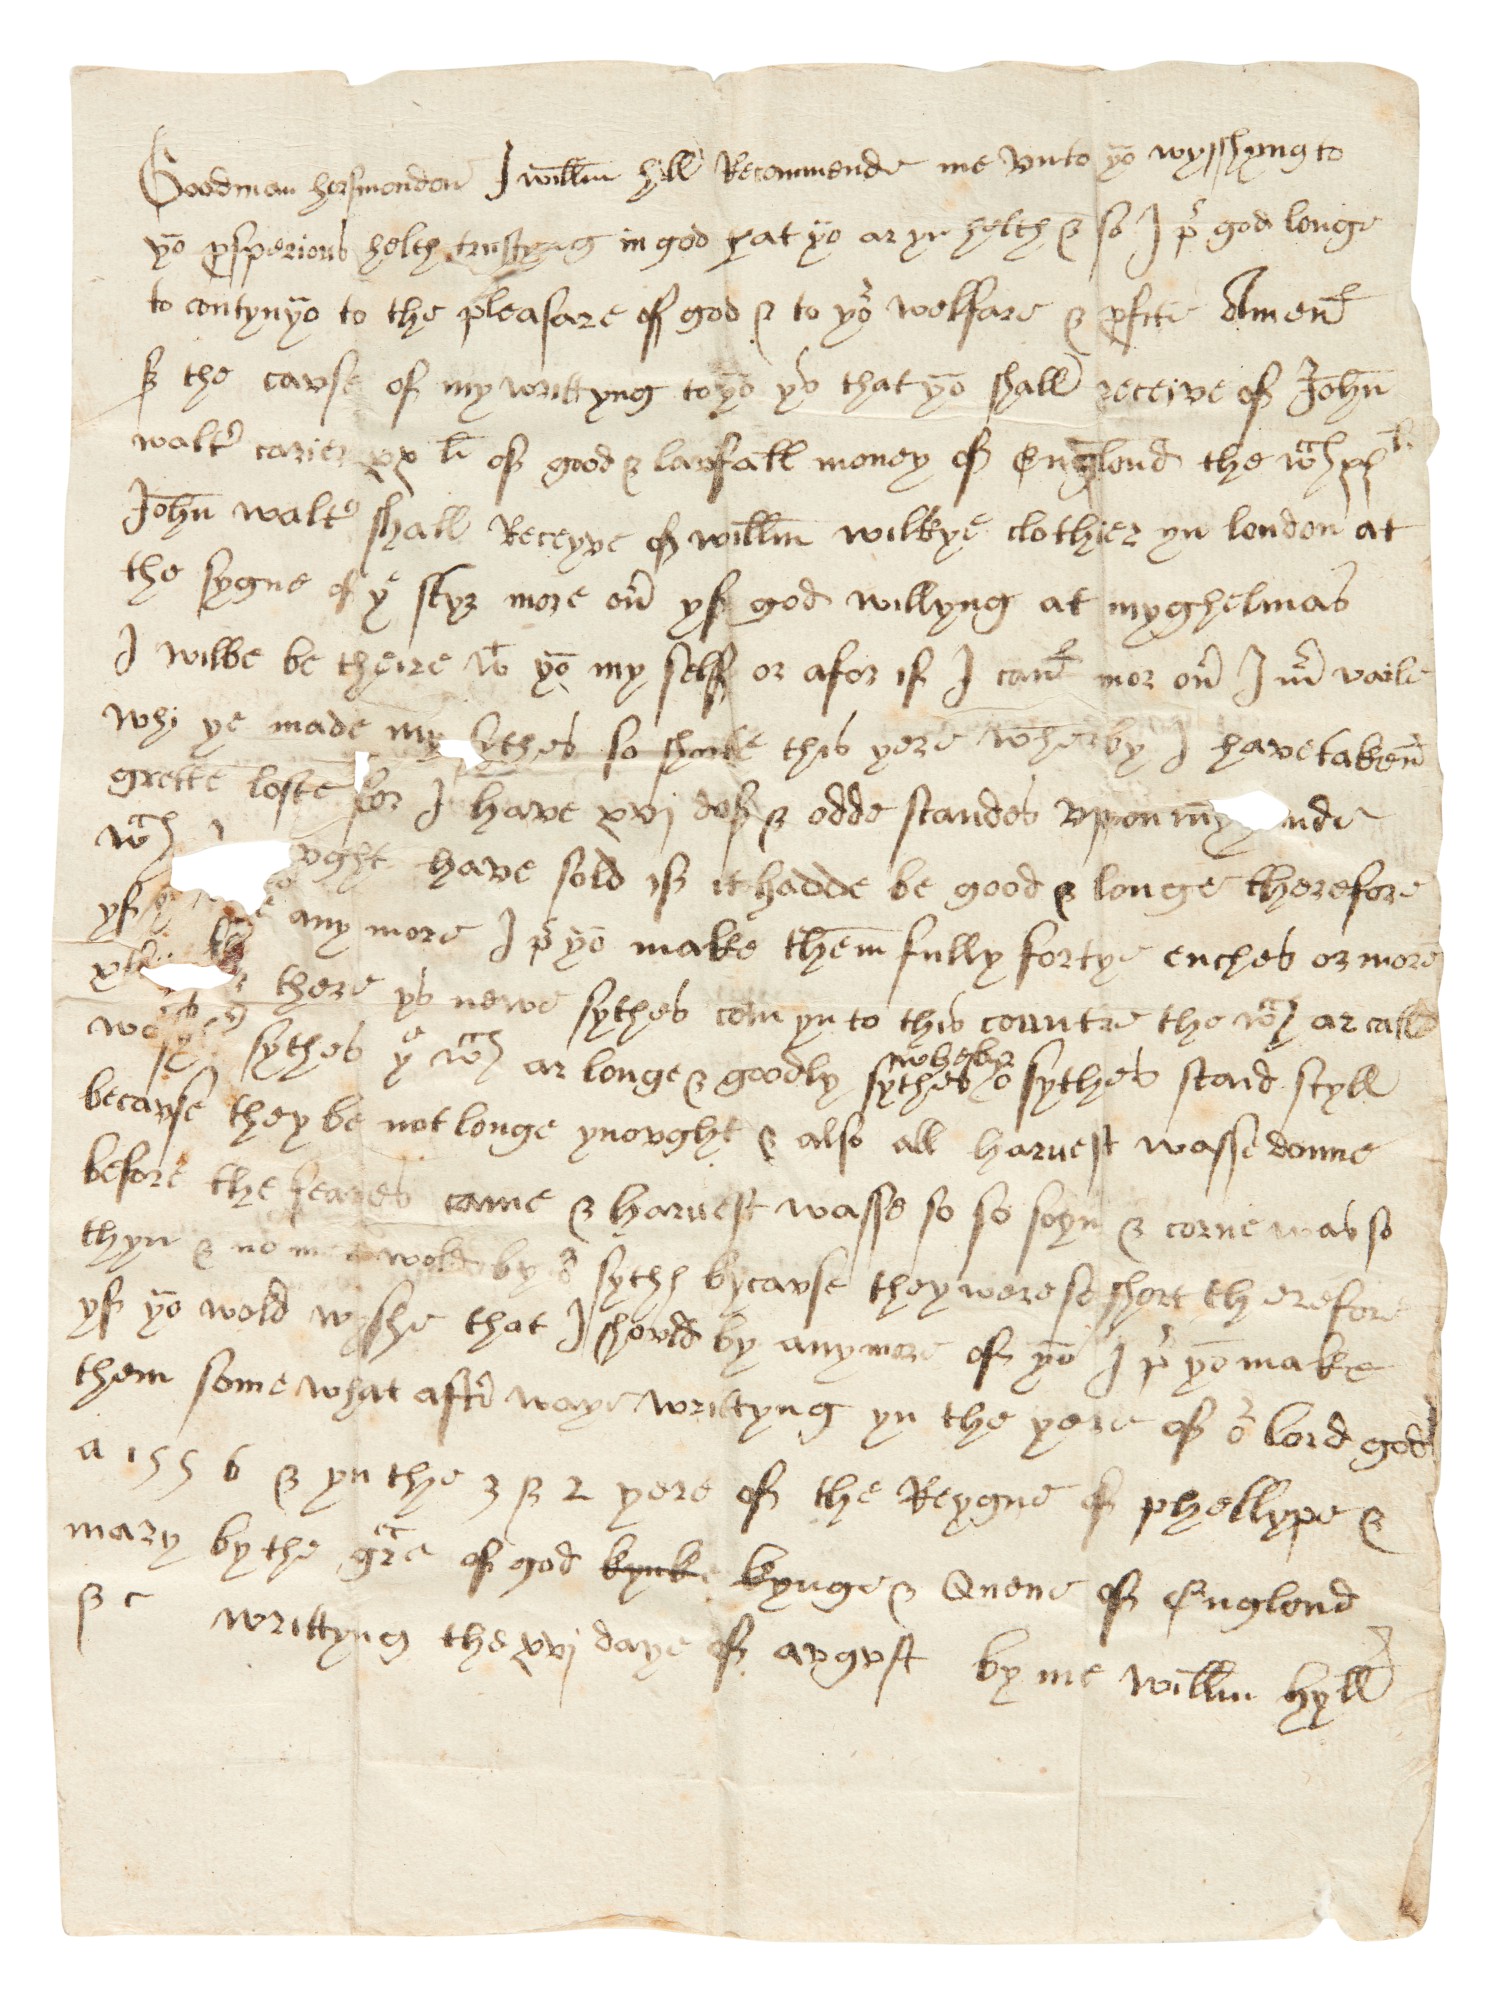 Goodman horsmonden I willm hill Recommende me vnto yo wysshyng to
yo psperious helth trustyng in god yat yo ar yn helth & so I pr god longe
to contynyo to the pleasare off god & to yor welfare & pfite Amen
& the cavse of my writtyng to yo ys that yo shall receive of John
walter carier xx li of good & lavfall money of Englond the wch xx li
John walter shall Receyve of willm wilkye clothier yn london at
the sygne of ye styr more our yf god willyng at myghelmas
I wilbe be theire wt yo my self or afor if I can mor our I
whi ye made my sythes so shorte this yere wherby I have taken
grette loste for I have xvj dos & odde standes vpon my
wch have sold if it hadde be good & longe therefore
yf any more I pr yo make them fully fortye enches or more
there ys newe sythes com yn to this countre the wch ar call
sythes ye wch ar longe & goodly sythes wherby or sythes stand styll
becavse they be not longe ynovght & also all harvest wasse donne
before the seares came & harvest wasse so so soyn & corne was so
thyn & no wold by or syth bycavse they were so short therefore
yf yo wold wyshe that I shovld by any more of yo I pr yo make
them some what after waye writtyng yn the yere of or lord god
a 1556 & yn the 3 & 2 yere of the Reygne of phellype &
mary by the grce of god kynke kynge & Quene of Englond
&c writtyng the xvj daye of avgvst by me willm hyll